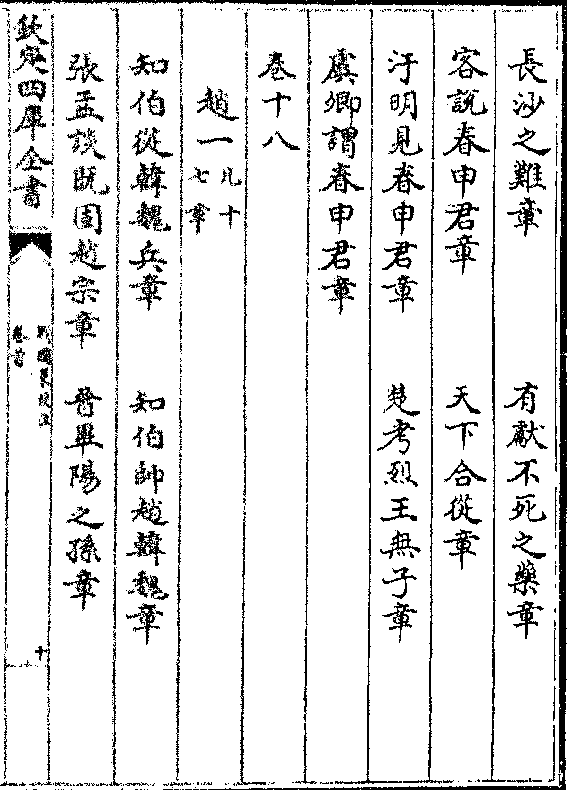 長沙之難章　有獻不死之藥章
客說春申君章　天下合從章
汙明見春申君章　楚考烈王無子章
虞卿謂春申君章
卷十八
趙一凡十七章
知伯從韓魏兵章　知伯帥趙韓魏章
張孟談既固趙宗章　晉畢陽之孫章
欽定四庫全書
戰國策校注
卷首
十